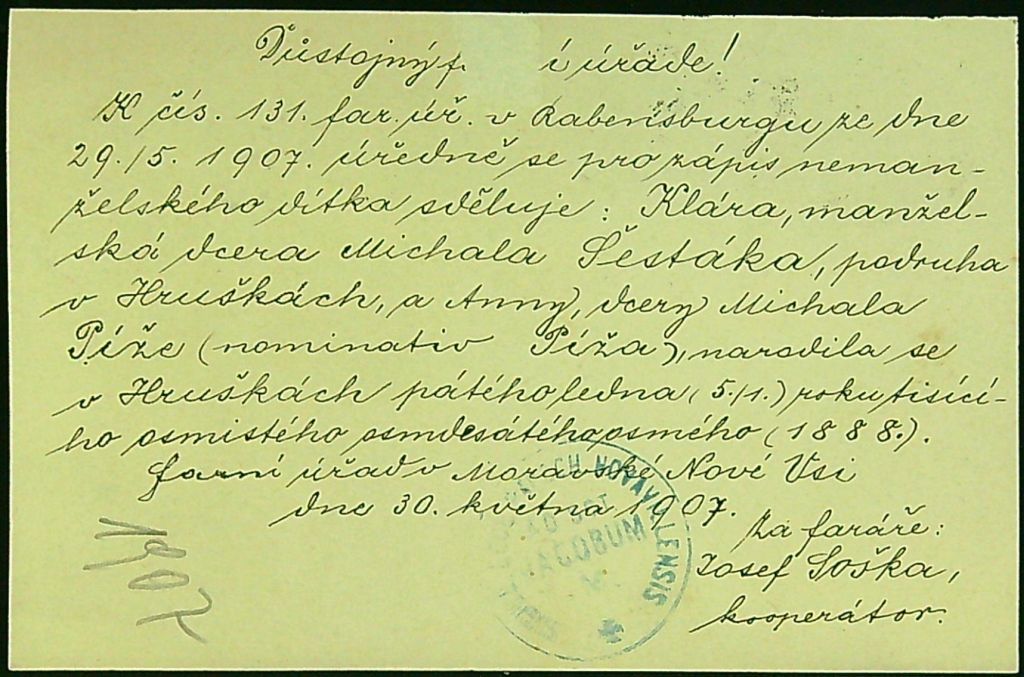 Důstojný f. í úřade!
K čís. 131. far. úř. v Rabensburgu ze dne
29./5. 1907. úředně se pro zápis neman-
želského dítka sděluje: Klára, manžel-
ská dcera Michala Šestáka, podruha
v Hruškách, a Anny, dcery Michala
Píže (nominativ Píža), narodila se
v Hruškách pátého ledna (5./1.) roku tisící-
ho osmistého osmdesátého osmého (1888.).
farní úřad v Moravské Nové Vsi
dne 30. května 1907.
Za faráře:
Josef Soška,
kooperátor.
NOVAV LENSIS
AD SCT
JACOBUM
1907